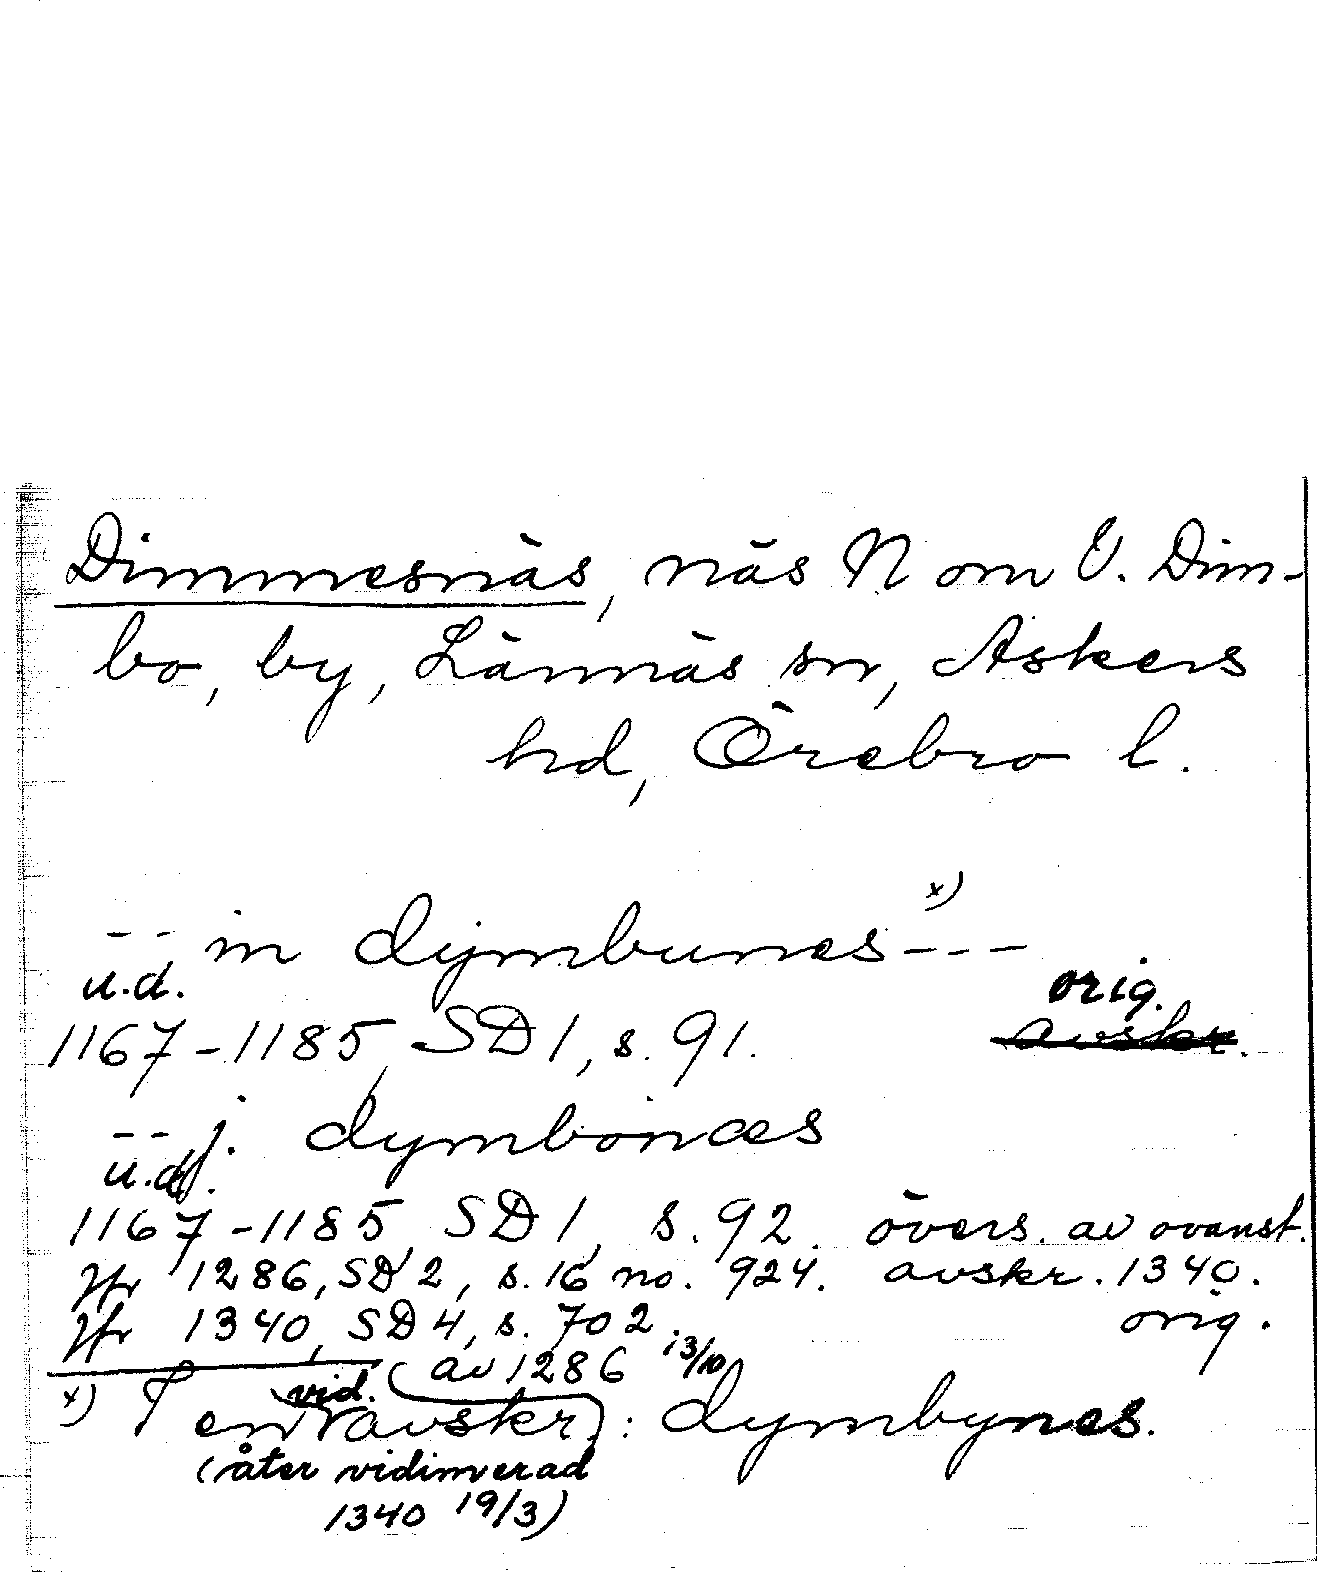 Dimmesnäs, näs N om Ö. Dim-
bo, by, Lännäs sn, Askers
hd, Örebro l.
-- in dymbunes x) ---
u.d. orig.
1167-1185 SD 1, s. 91. avskr.
-- j. dymbonæs
u.d.
1167-1185 SD 1, s. 92. övers. av ovanst.
Jfr 1286, SD 2, s. 16 no. 924. avskr. 1340.
Jfr 1340, SD 4, s. 702. orig.
av 1286 13/10
x) I en vid. avskr. : dymbynes.
(åter vidimerad
1340 19/3)